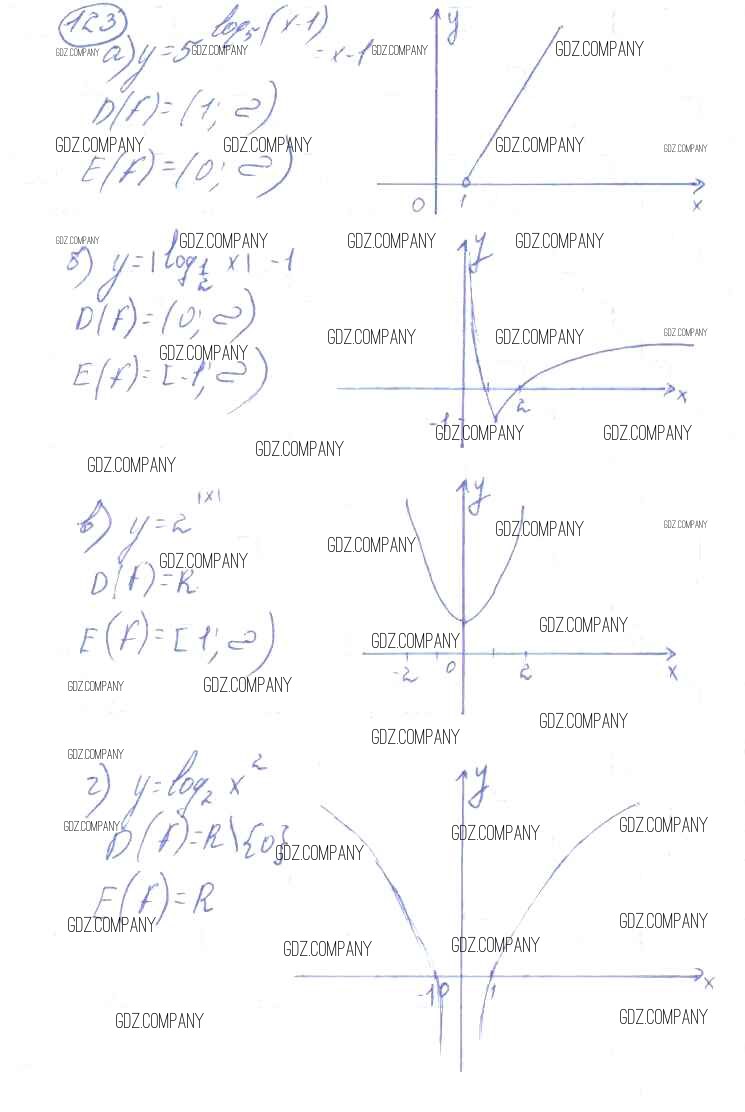 123
а) y = 5^log₅(x-1) = x-1
D(f) = (1; ∞)
E(f) = (0; ∞)
y
0 1 x
б) y = |log_1/2 x| - 1
D(f) = (0; ∞)
E(f) = [-1; ∞)
y
-1 2 x
в) y = 2^|x|
D(f) = R
E(f) = [1; ∞)
y
-2 0 2 x
г) y = log₂ x²
D(f) = R\{0}
E(f) = R
y
-1 0 1 x
GDZ.COMPANY GDZ.COMPANY GDZ.COMPANY GDZ.COMPANY
GDZ.COMPANY GDZ.COMPANY GDZ.COMPANY GDZ.COMPANY
GDZ.COMPANY GDZ.COMPANY GDZ.COMPANY GDZ.COMPANY
GDZ.COMPANY GDZ.COMPANY GDZ.COMPANY
GDZ.COMPANY
GDZ.COMPANY GDZ.COMPANY
GDZ.COMPANY GDZ.COMPANY
GDZ.COMPANY GDZ.COMPANY
GDZ.COMPANY GDZ.COMPANY
GDZ.COMPANY GDZ.COMPANY
GDZ.COMPANY GDZ.COMPANY
GDZ.COMPANY GDZ.COMPANY
GDZ.COMPANY
GDZ.COMPANY GDZ.COMPANY GDZ.COMPANY
GDZ.COMPANY
GDZ.COMPANY GDZ.COMPANY
GDZ.COMPANY GDZ.COMPANY
GDZ.COMPANY GDZ.COMPANY